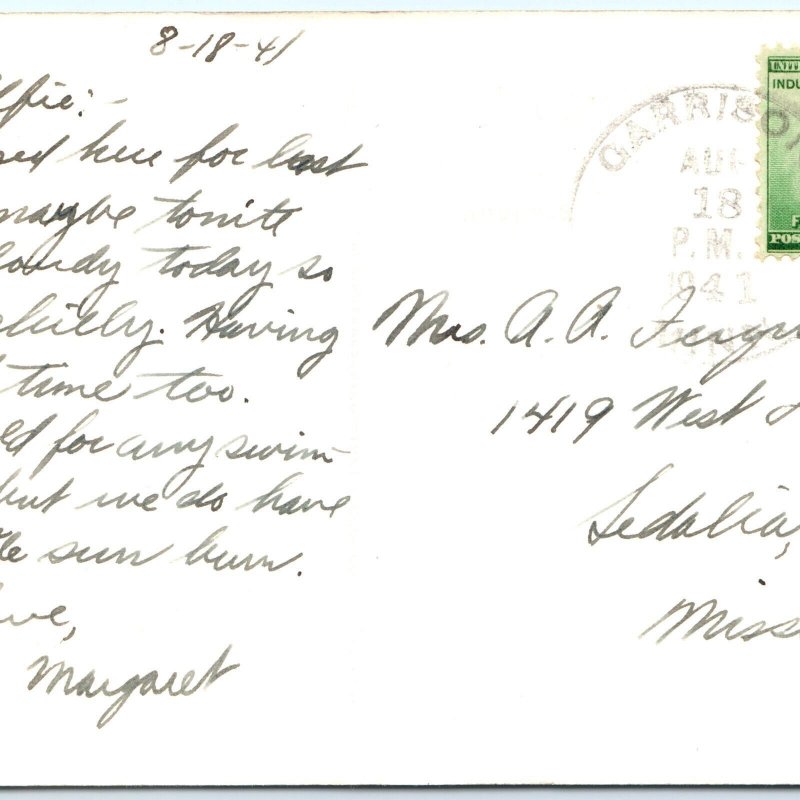 8-18-41
ffie:-
sed here for last
maybe tonite
loudy today so
chilly. Having
time too.
ld for any swim-
but we do have
tle sun burn.
ove,
Margaret
GARRISON
AUG
18
P.M.
1941
MINN
UNIT
INDU
F
POS
Mrs. A. A. Fergu
1419 West
Sedalia,
Miss